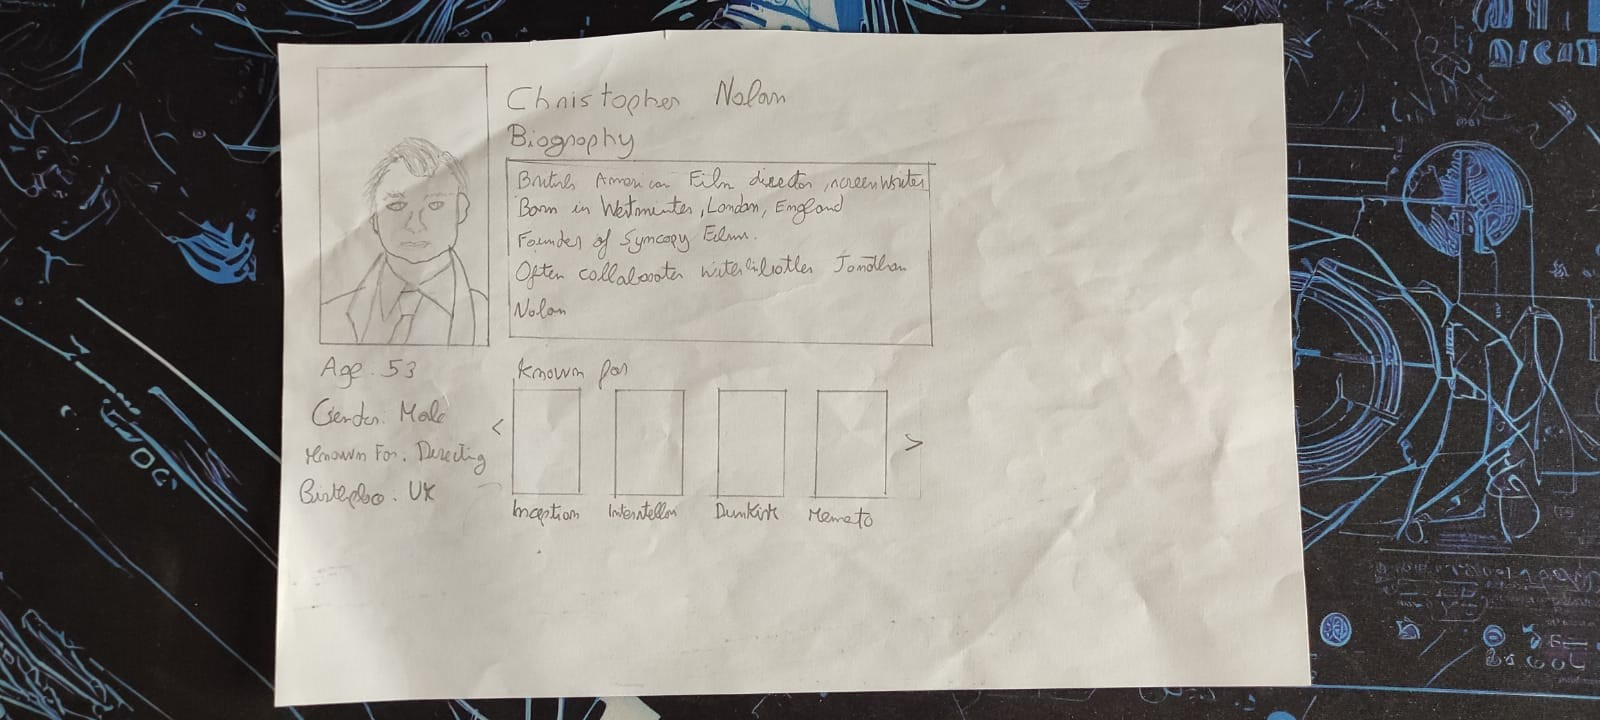 Christopher Nolan
Biography
British American Film director, screenwriter
Born in Westminter, London, England
Founder of Syncopy Film.
Often collaborates brother Jonathan
Nolan
Age. 53
Gender. Male
Known For. Directing
Birthplace. UK
Known for
< >
Inception Interstellar Dunkirk Memeto